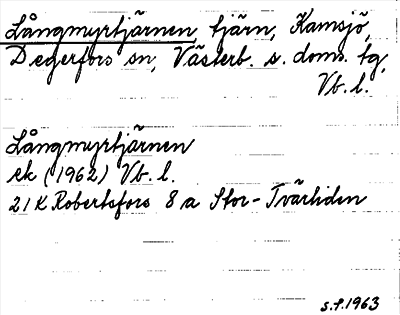 Långmyrtjärnen, tjärn, Kamsjö,
Degerfors sn, Västerb. s. doms. tg,
Vb. l.
Långmyrtjärnen
ek (1962) Vb. l.
21 K Robertsfors 8 a Stor-Tvärliden
s.f. 1963